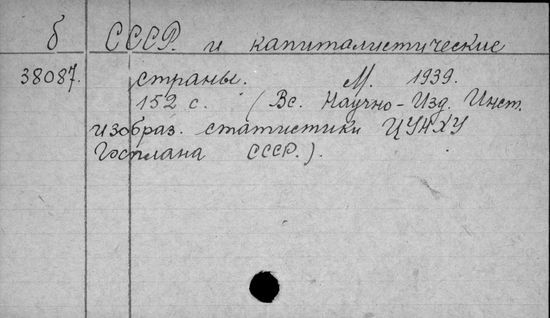 б СССР. и капиталистические
38087. страны. М. 1939.
152 с. (Вс. Научно-Изд. Инст.
изобраз. статистики ЦУНХУ
Госплана СССР.).